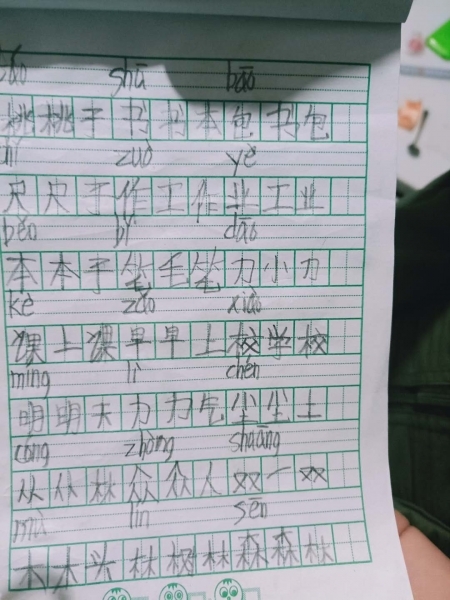 shū bāo
桃桃子书书本包书包
zuò yè
尺尺子作工作业工业
běn bǐ dāo
本本子笔毛笔刀小刀
kè zǎo xiào
课上课早早上校学校
míng lì chén
明明天力力气尘尘土
cóng zhòng shuāng
从从林众众人双一双
mù lín sēn
木木头林树林森森林